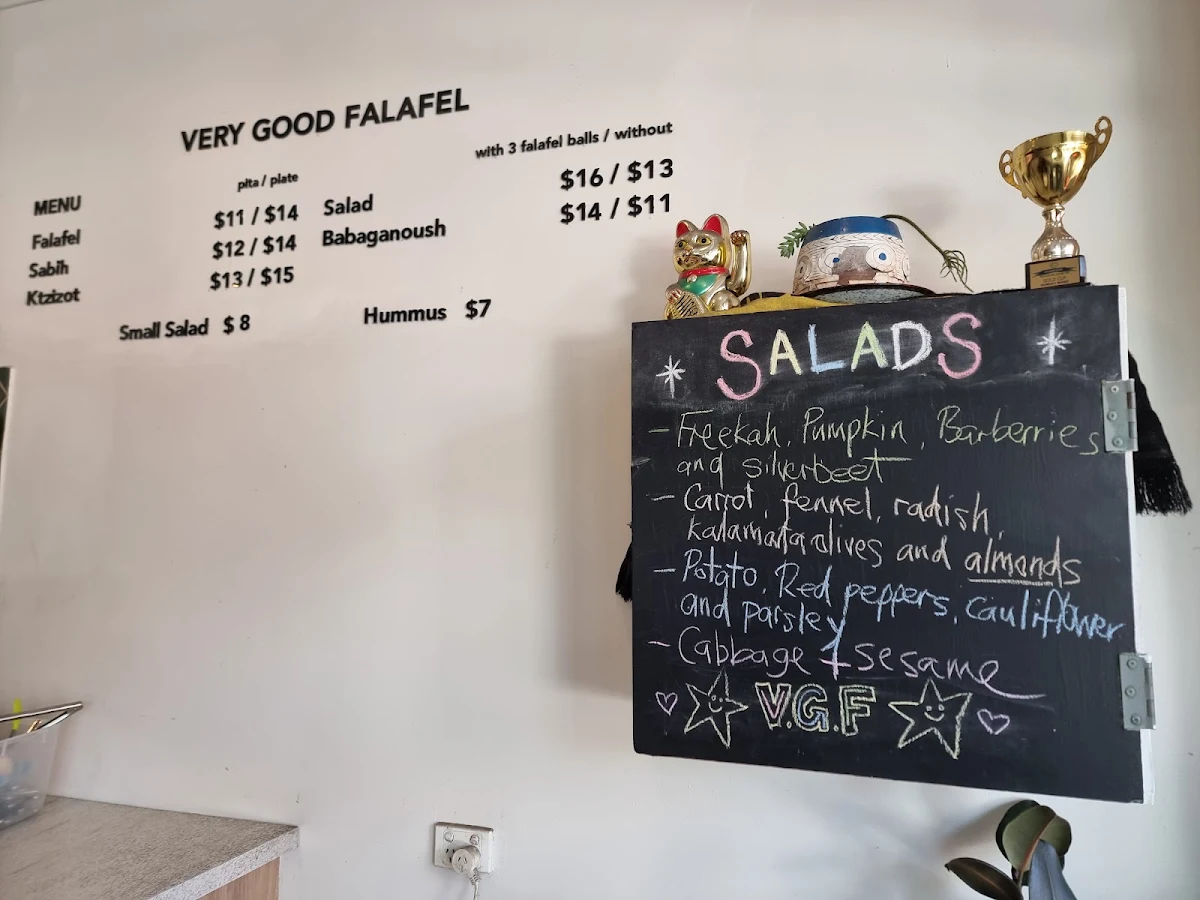 VERY GOOD FALAFEL
MENU
pita / plate
Falafel $11 / $14
Sabih $12 / $14
Ktzizot $13 / $15
with 3 falafel balls / without
Salad $16 / $13
Babaganoush $14 / $11
Small Salad $8
Hummus $7
SALADS
- Freekah, Pumpkin, Barberries
and silverbeet
- Carrot, fennel, radish,
kalamata olives and almonds
- Potato, Red peppers, cauliflower
and parsley
- Cabbage + sesame
V.G.F